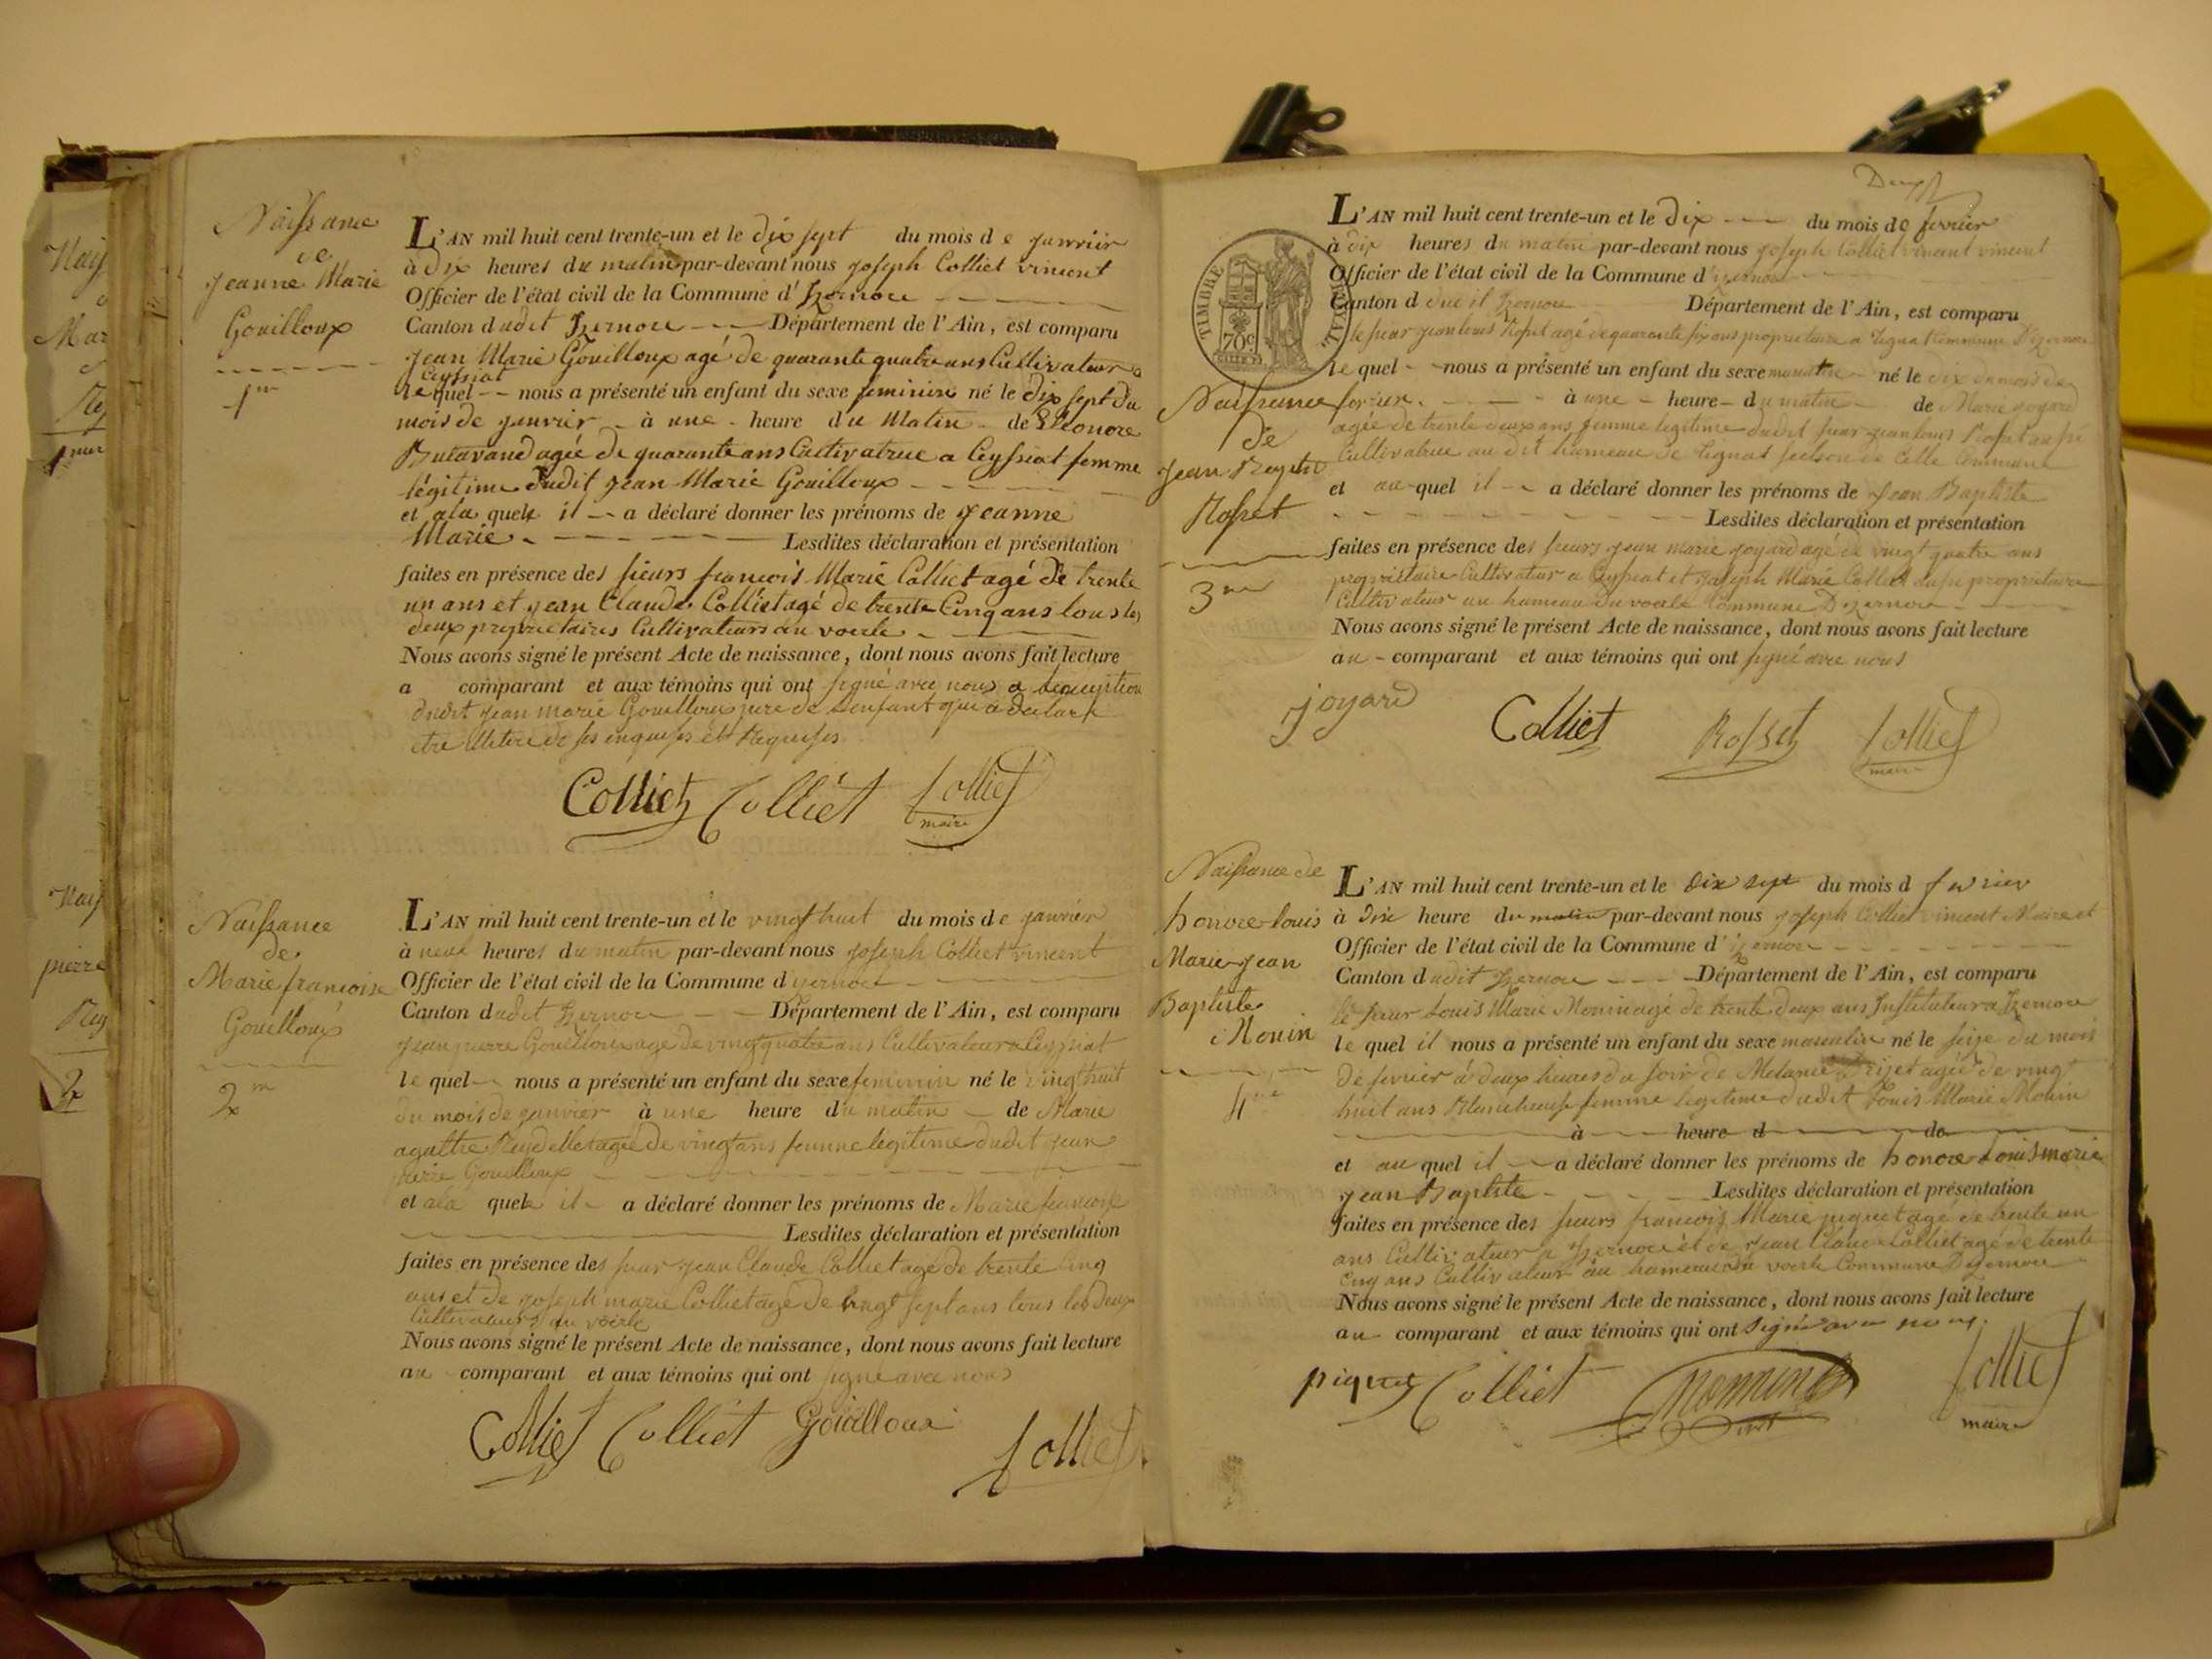 Naissance
de
Jeanne Marie
Gouilloux
1re
L'AN mil huit cent trente-un et le dix sept du mois de janvier
à dix heures du matin par-devant nous joseph Colliet vincent
Officier de l'état civil de la Commune d'Izernore
Canton dudit Izernore Département de l'Ain, est comparu
jean Marie Gouilloux agé de quarante quatre ans Cultivateur a
Ceyssiat
lequel nous a présenté un enfant du sexe feminin né le dix sept du
mois de janvier à une heure du Matin de Eleonore
Butavand agée de quarante ans Cultivatrice a Ceyssiat femme
légitime dudit jean Marie Gouilloux
et ala quele il a déclaré donner les prénoms de jeanne
Marie Lesdites déclaration et présentation
faites en présence des sieurs francois Marie Colliet agé de trente
un ans et jean Claude Colliet agé de trente Cinq ans tous les
deux proprietaires Cultivateurs au voerle
Nous avons signé le présent Acte de naissance, dont nous avons fait lecture
a comparant et aux témoins qui ont signé avec nous a lexception
dudit jean marie Gouilloux pere de lenfant qui a declaré
etre illitere de ses enquises et Requises
Colliet Colliet Colliet
maire
Naissance
de
Marie francoise
Gouilloux
2me
L'AN mil huit cent trente-un et le vingt huit du mois de janvier
à neuf heures du matin par-devant nous joseph Colliet vincent
Officier de l'état civil de la Commune dyzernore
Canton dudit Izernore Département de l'Ain, est comparu
jean pierre Gouilloux agé de vingt quatre ans Cultivateur a Ceyssiat
lequel nous a présenté un enfant du sexe feminin né le vingt huit
du mois de janvier à une heure du matin de Marie
agathe Reydellet agée de vingt ans femme legitime dudit jean
pierre Gouilloux
et ala quele il a déclaré donner les prénoms de Marie francoise
Lesdites déclaration et présentation
faites en présence des sieur jean Claude Colliet agé de trente Cinq
ans et de joseph marie Colliet agé de vingt sept ans tous les deux
Cultivateurs au voerle
Nous avons signé le présent Acte de naissance, dont nous avons fait lecture
au comparant et aux témoins qui ont signé avec nous
Colliet Colliet Gouilloux Colliet
TIMBRE ROYAL
70c
Naissance
de
Jean Baptiste
Rosset
3me
L'AN mil huit cent trente-un et le dix du mois de fevrier
à dix heures du matin par-devant nous joseph Colliet vincent vincent
Officier de l'état civil de la Commune d'izernore
Canton dudit Izernore Département de l'Ain, est comparu
le sieur jean louis Rosset agé de quarante six ans proprietaire a Tignat Commune Dizernore
lequel nous a présenté un enfant du sexe masculin né le dix du mois de
fevrier à une heure du matin de Marie joyard
agée de trente deux ans femme legitime dudit sieur jean louis Rosset aussi
Cultivatrice au dit hameau de Tignat section de Celle Commune
et au quel il a déclaré donner les prénoms de Jean Baptiste
Lesdites déclaration et présentation
faites en présence des sieurs jean marie joyard agé de vingt quatre ans
proprietaire Cultivateur a Ceyssiat et joseph Marie Colliet aussi proprietaire
Cultivateur au hameau du voerle Commune Dizernore
Nous avons signé le présent Acte de naissance, dont nous avons fait lecture
au comparant et aux témoins qui ont signé avec nous
joyard Colliet Rosset Colliet
maire
Naissance de
honoré louis
Marie Jean
Baptiste
Monin
4me
L'AN mil huit cent trente-un et le dix sept du mois d fevrier
à Dix heure du matin par-devant nous joseph Colliet vincent Maire et
Officier de l'état civil de la Commune d'izernore
Canton dudit Izernore Département de l'Ain, est comparu
le sieur Louis Marie Monin agé de trente deux ans Instituteur a Izernore
lequel il nous a présenté un enfant du sexe masculin né le seize du mois
de fevrier a deux heures du soir de Melanie agée de vingt
huit ans Blanchisseuse femme legitime dudit Louis Marie Monin
à heure d de
et au quel il a déclaré donner les prénoms de honoré Louis marie
jean Baptiste Lesdites déclaration et présentation
faites en présence des sieurs francois Marie piquet agé de trente un
ans Cultivateur a Izernore et de jean Claude Colliet agé de trente
Cinq ans Cultivateur au hameau du voerle Commune Dizernore
Nous avons signé le présent Acte de naissance, dont nous avons fait lecture
au comparant et aux témoins qui ont signé avec nous.
piquet Colliet Monin Colliet
maire